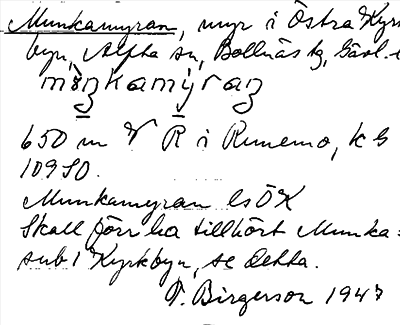 Munkamyran, myr i Östra Kyrk
byn, Alfta sn, Bollnäs tg, Gävl. l
muŋkamýraŋ
650 m V R i Runemo, k b
109 SO.
Munkamyran ls ÖK
Skall förr ha tillhört Munka=
sub 1 Kyrkbyn, se detta.
T. Birgerson 1947